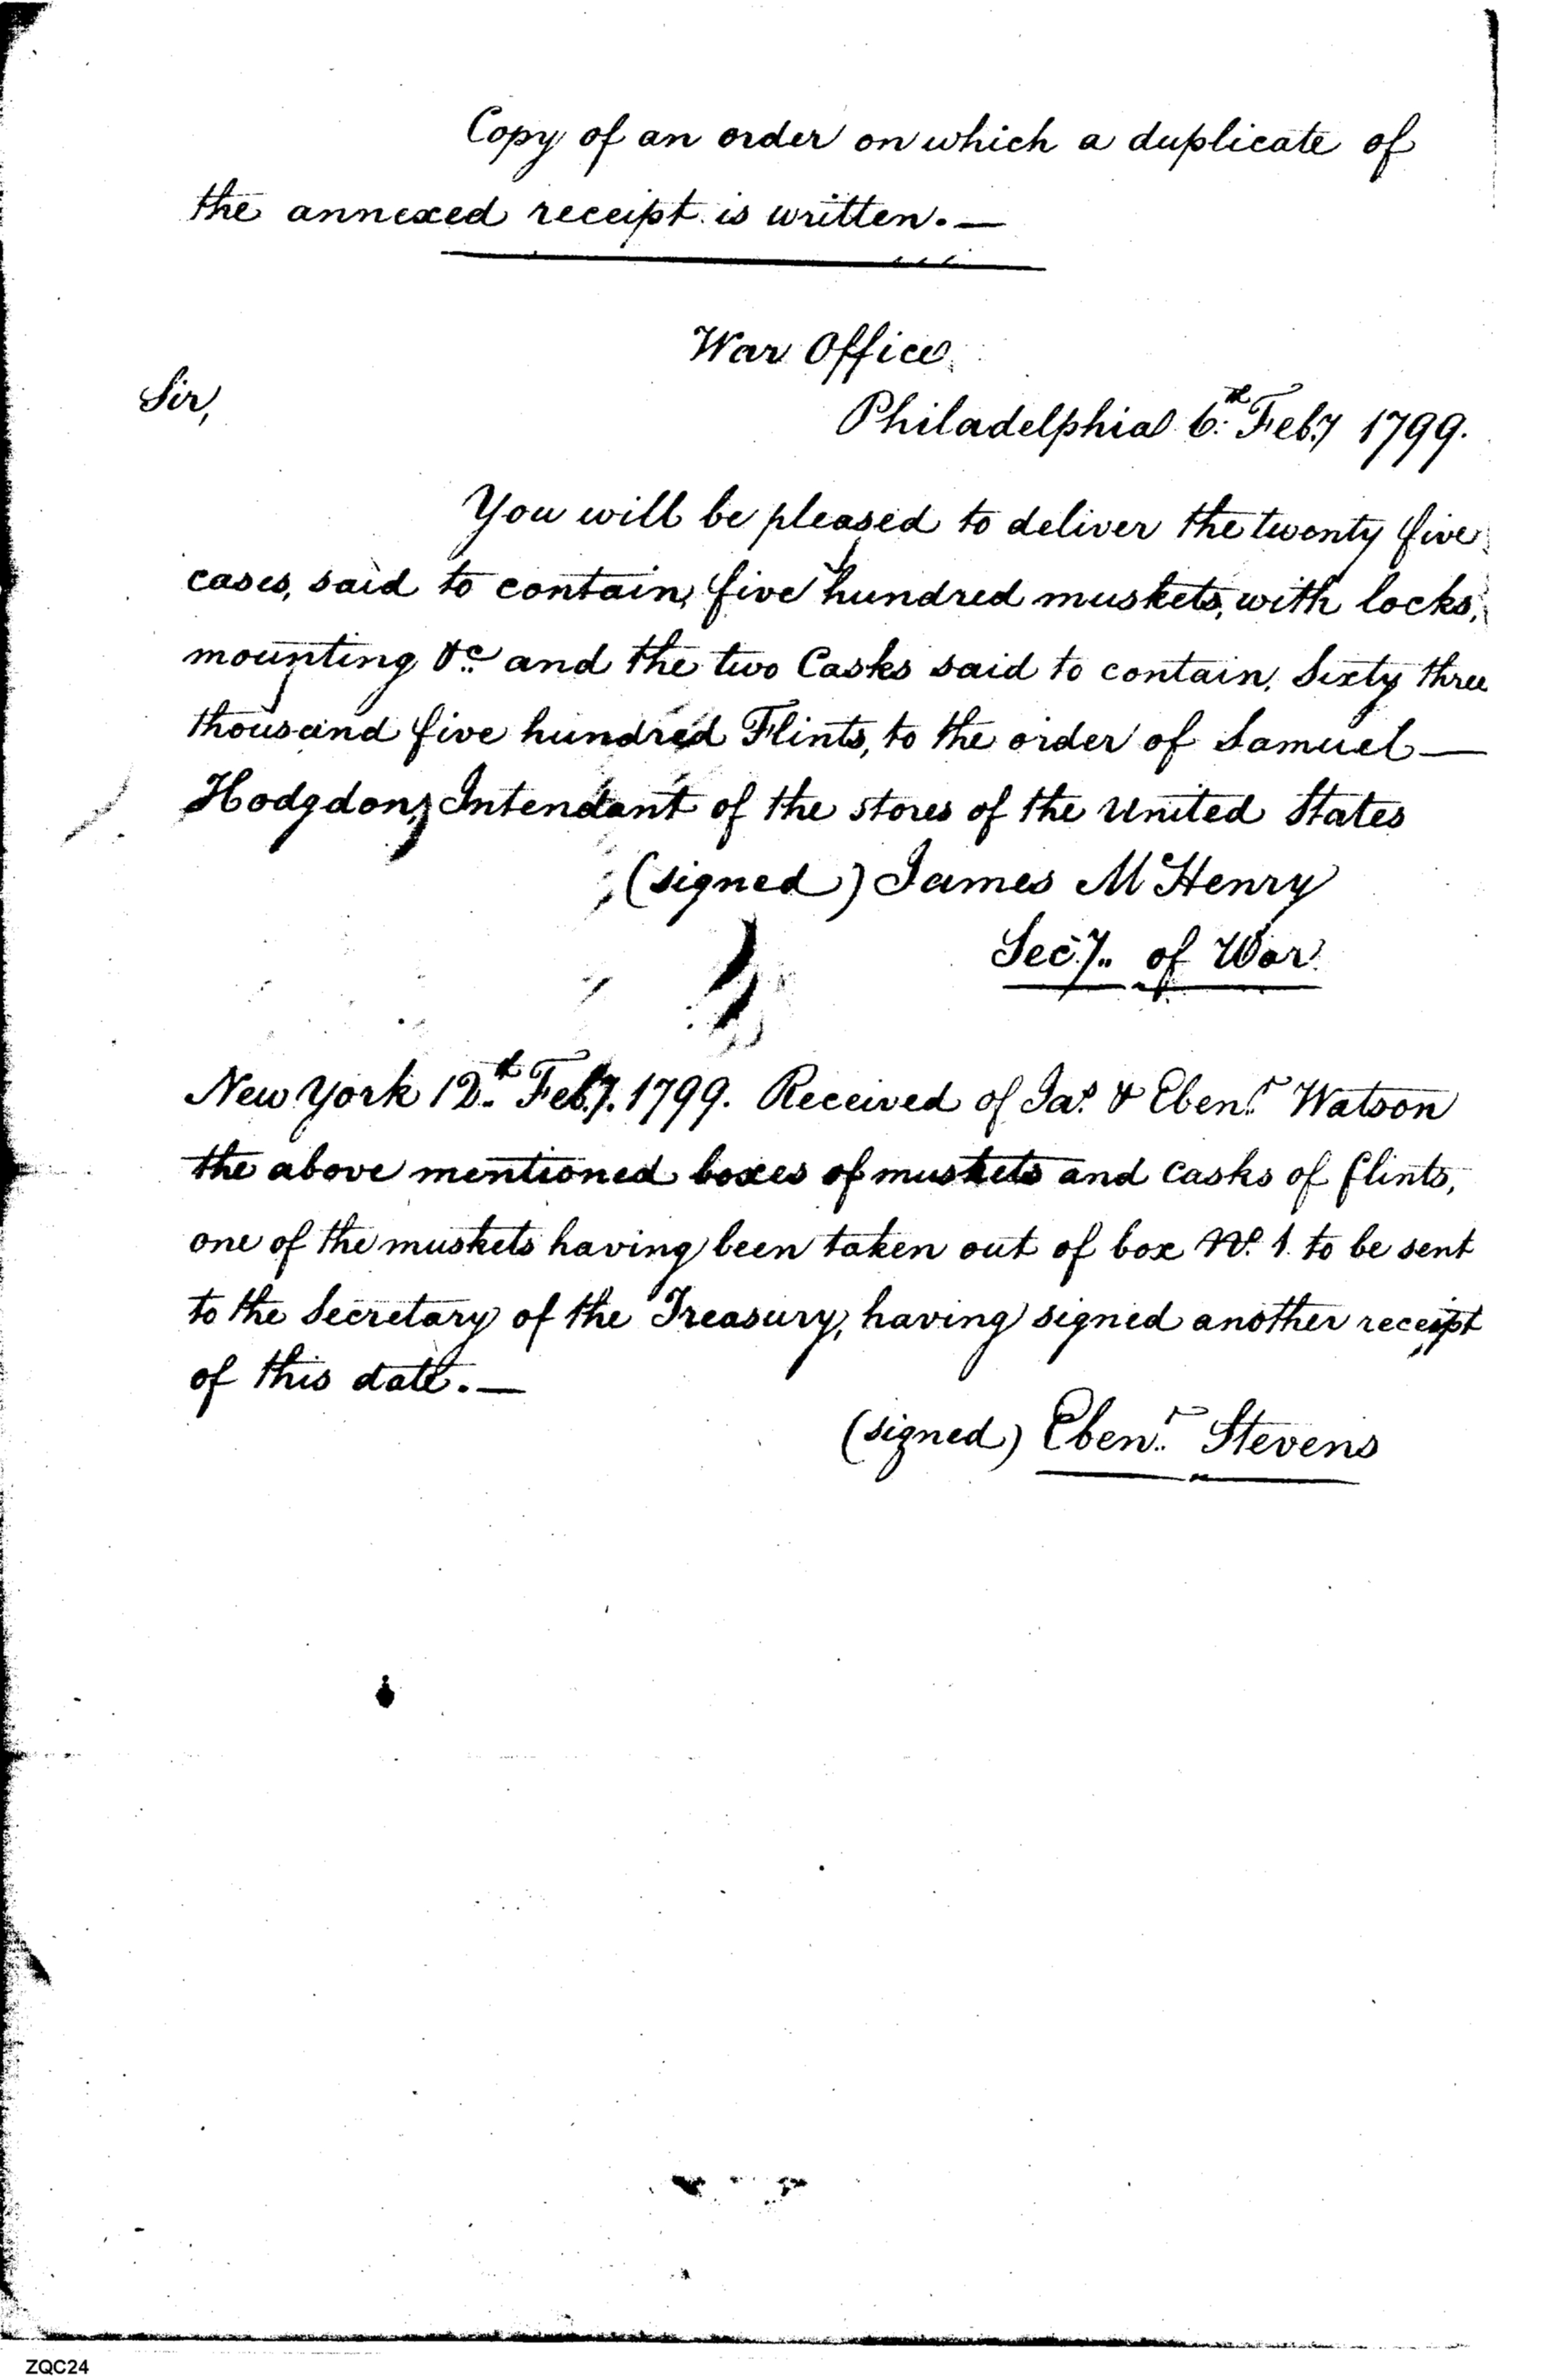 Copy of an order on which a duplicate of
the annexed receipt is written.—
War Office
Sir,
Philadelphia 6th Feby 1799.
You will be pleased to deliver the twenty five
cases, said to contain, five hundred muskets, with locks,
mounting &c and the two Casks said to contain, Sixty three
thousand five hundred Flints, to the order of Samuel—
Hodgdon, Intendant of the stores of the United States
(signed) James McHenry
Secy. of War
New York 12th Feby. 1799. Received of Jas. & Ebenr. Watson
the above mentioned boxes of muskets and casks of flints,
one of the muskets having been taken out of box No. 1. to be sent
to the Secretary of the Treasury, having signed another receipt
of this date.—
(signed) Ebenr. Stevens
ZQC24